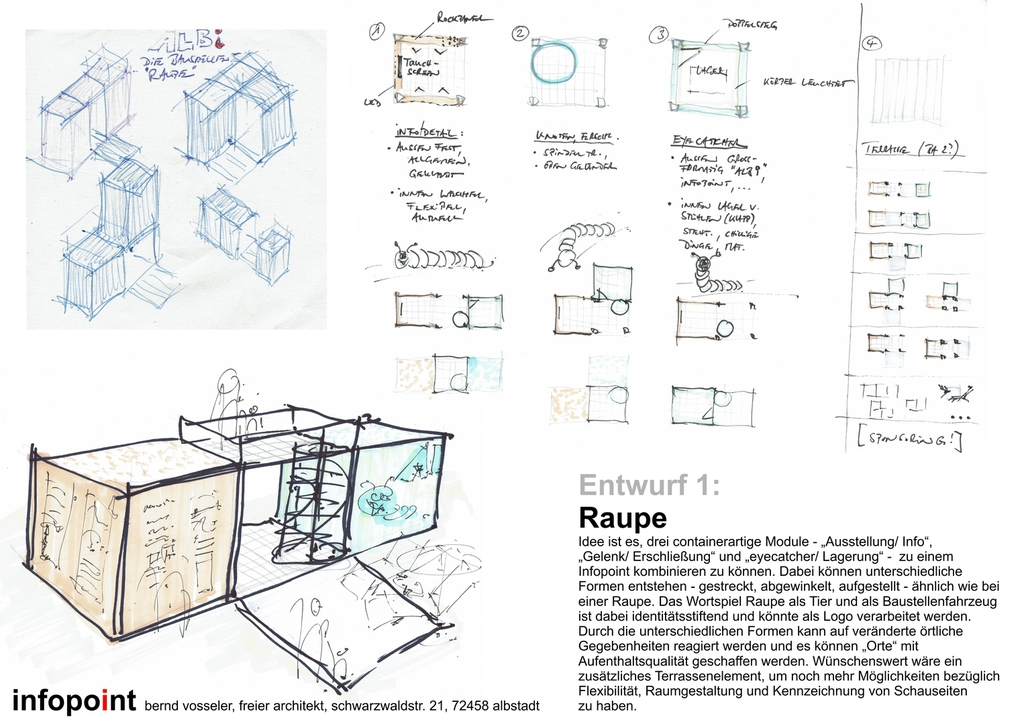 ALBi
DIE BAUSTELLEN-
"RAUPE"
1
TOUCH-
SCREEN
LED
INFO/DETAIL:
• AUSSEN FEST,
ALLGEMEIN,
• INNEN
FLEXIBEL,
AKTUELL
2
• SPINDELTR.,
3
DOPPELSTEG
LAGER
KÖRPER LEUCHTET
EYECATCHER
• AUSSEN GROSS-
INFOPOINT, ...
• INNEN LAGER V.
STÜHLEN (KLAPP)
DINGE
4
TERRASSE (BA 2?)
[SPONSORING!]
Entwurf 1:
Raupe
Idee ist es, drei containerartige Module - „Ausstellung/ Info“,
„Gelenk/ Erschließung“ und „eyecatcher/ Lagerung“ - zu einem
Infopoint kombinieren zu können. Dabei können unterschiedliche
Formen entstehen - gestreckt, abgewinkelt, aufgestellt - ähnlich wie bei
einer Raupe. Das Wortspiel Raupe als Tier und als Baustellenfahrzeug
ist dabei identitätsstiftend und könnte als Logo verarbeitet werden.
Durch die unterschiedlichen Formen kann auf veränderte örtliche
Gegebenheiten reagiert werden und es können „Orte“ mit
Aufenthaltsqualität geschaffen werden. Wünschenswert wäre ein
zusätzliches Terrassenelement, um noch mehr Möglichkeiten bezüglich
Flexibilität, Raumgestaltung und Kennzeichnung von Schauseiten
zu haben.
infopoint bernd vosseler, freier architekt, schwarzwaldstr. 21, 72458 albstadt